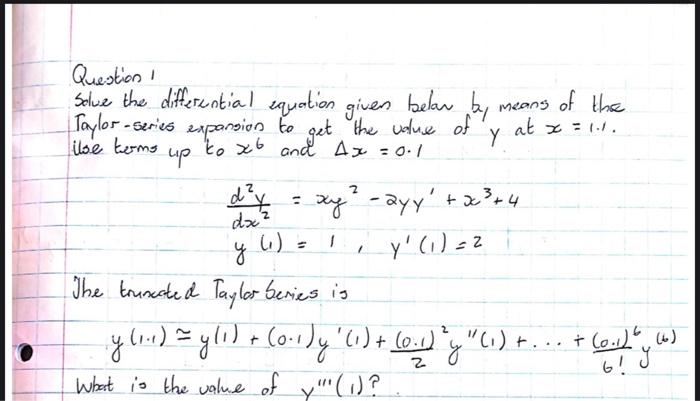 Question 1
Solve the differential equation given below by means of the
Taylor-series expansion to get the value of y at x = 1.1.
Use terms up to x⁶ and Δx = 0.1
d²y/dx² = xy² - 2yy' + x³ + 4
y(1) = 1 , y'(1) = 2
The truncated Taylor Series is
y(1.1) ≃ y(1) + (0.1)y'(1) + (0.1)²/2 y''(1) + ... + (0.1)⁶/6! y⁽⁶⁾
What is the value of y'''(1)?